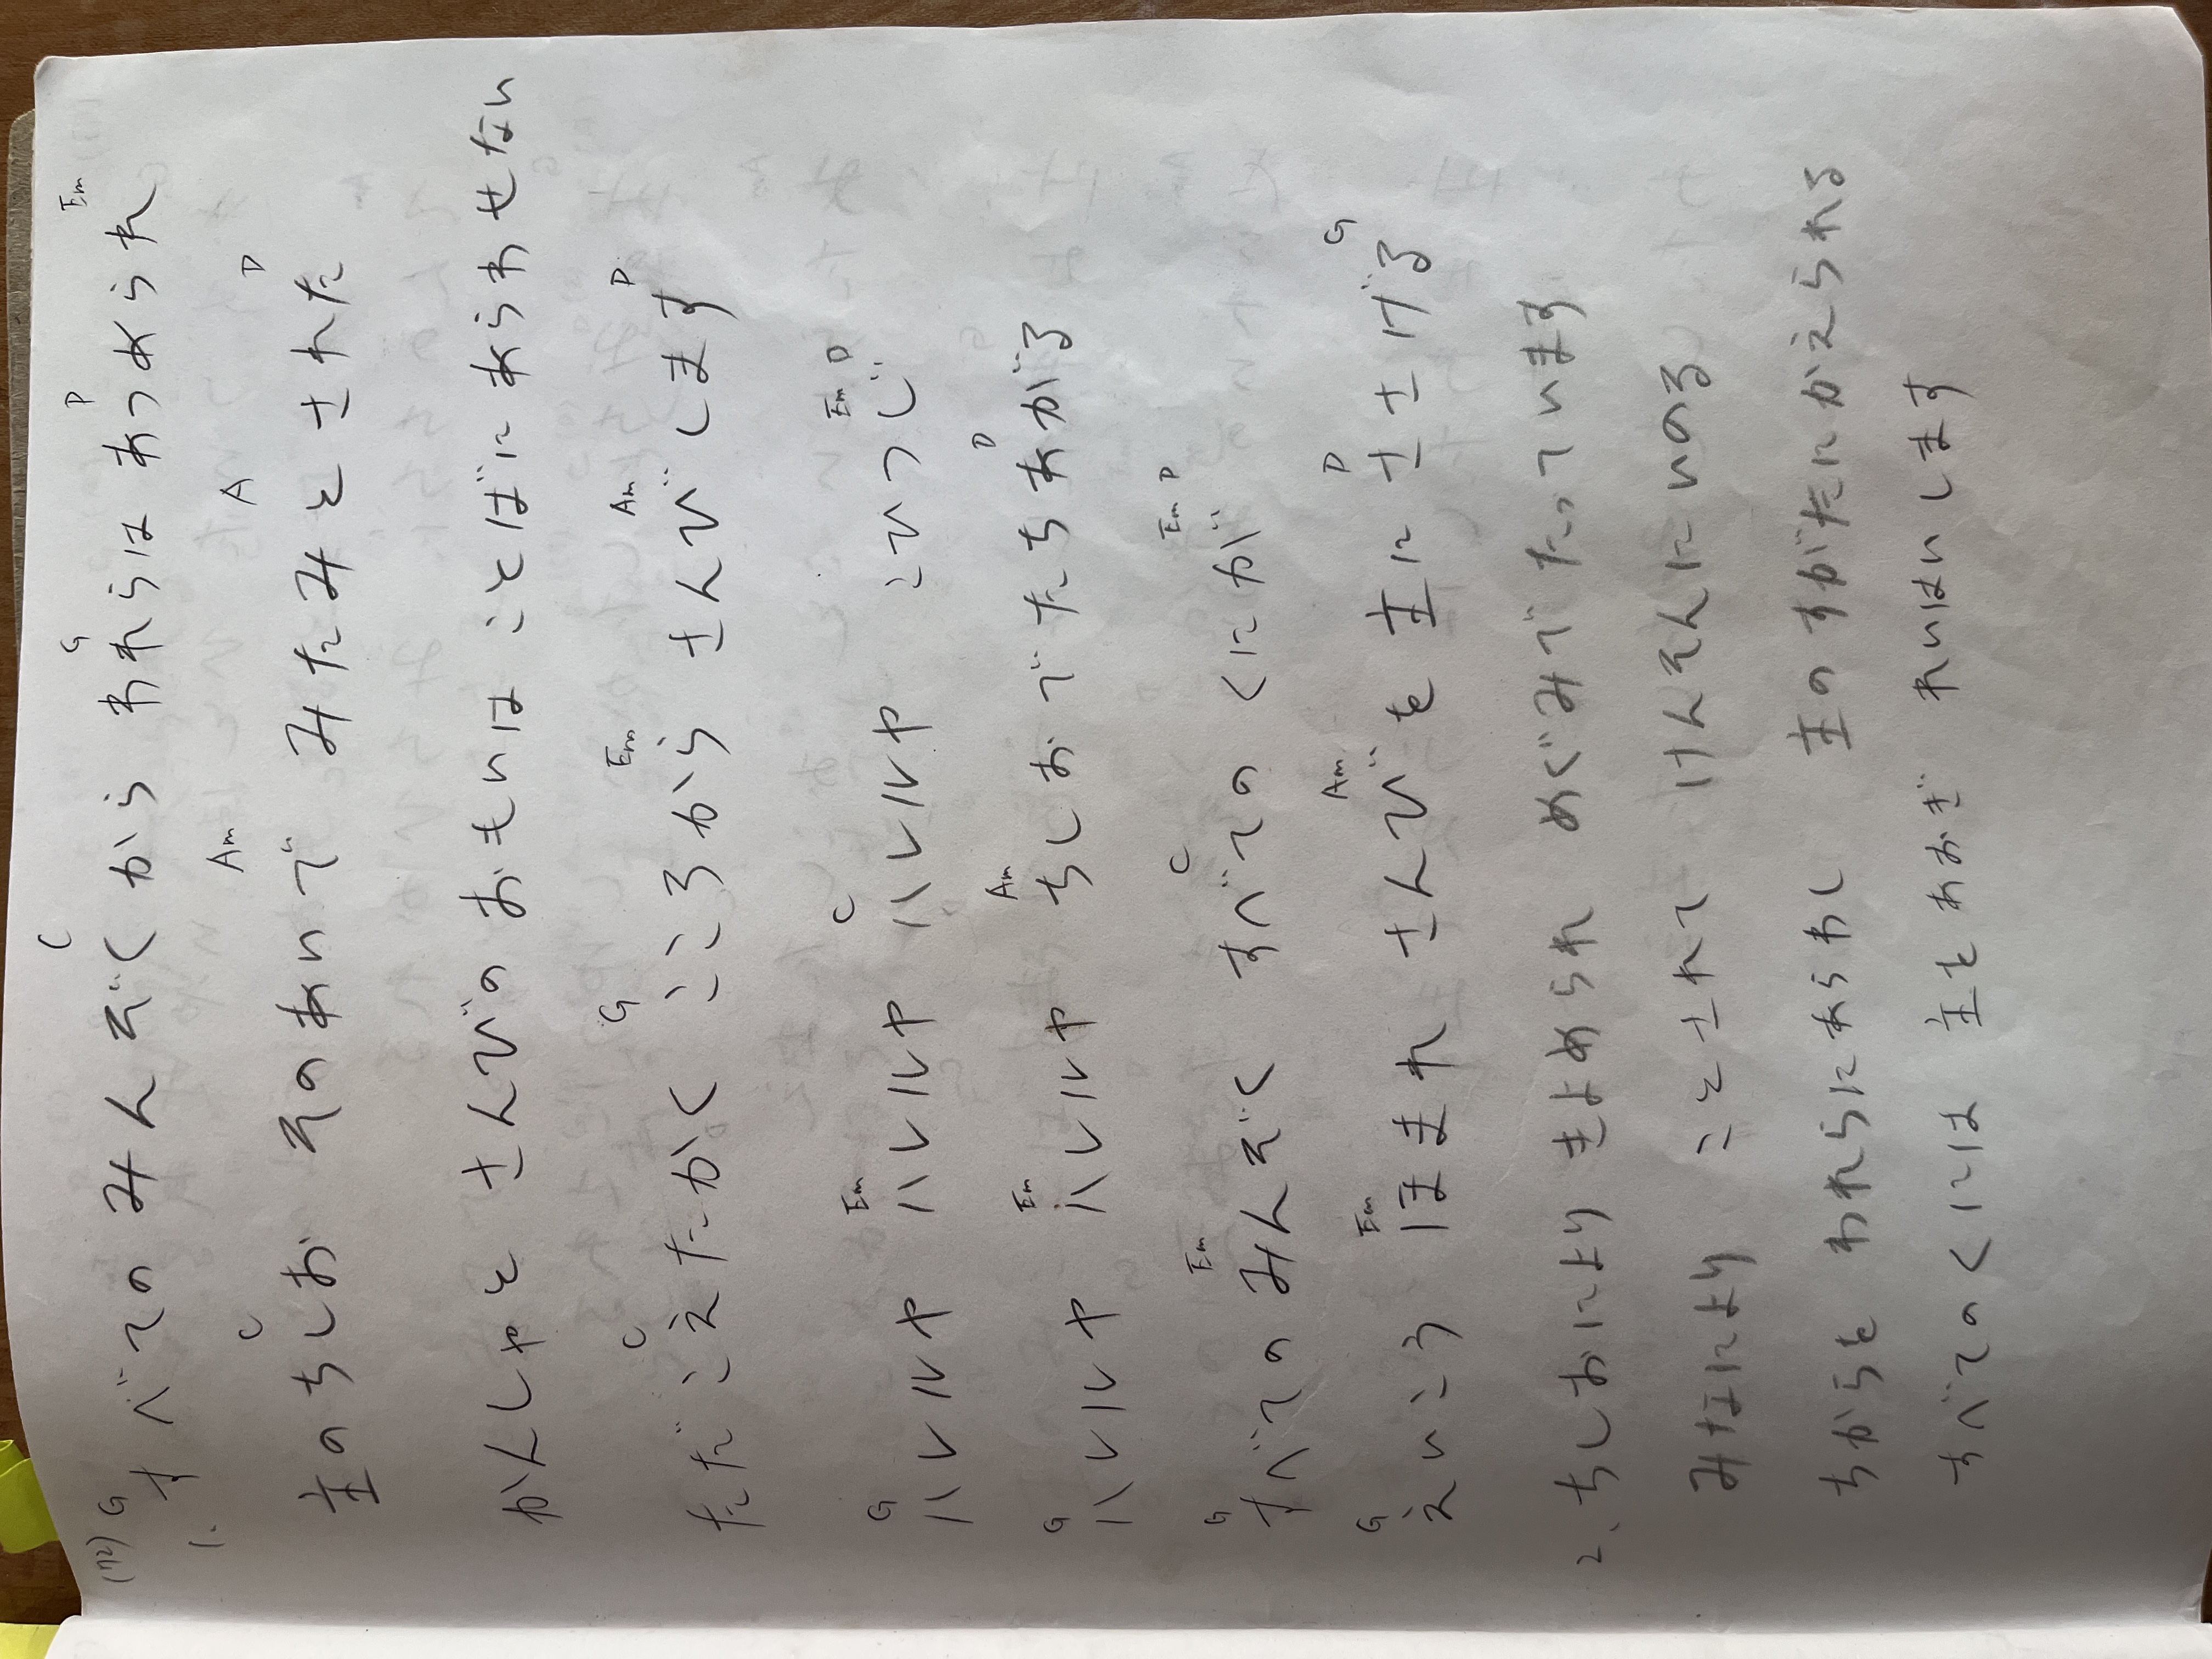 (72) G C G D Em
1. すべての みんぞくから われらは あつめられ
C Am A D
主のちしお そのあいで みたみとされた
かんしゃと さんびの おもいは ことばに あらわせない
C G Em Am D
ただ こえたかく こころから さんびします
G Em C Em D
ハレルヤ ハレルヤ ハレルヤ こひつじ
G Em Am D
ハレルヤ ハレルヤ ちしおで たちあがる
G Em C Em D
すべての みんぞく すべての くにが
G Em Am D G
えいこう ほまれ さんびを 主に ささげる
2、ちしおにより きよめられ めぐみで たっています
みなにより ことされて けんそんに いのる
ちからを われらにあらわし 主の すがたに かえられる
すべての くには 主を あおぎ れいはいします